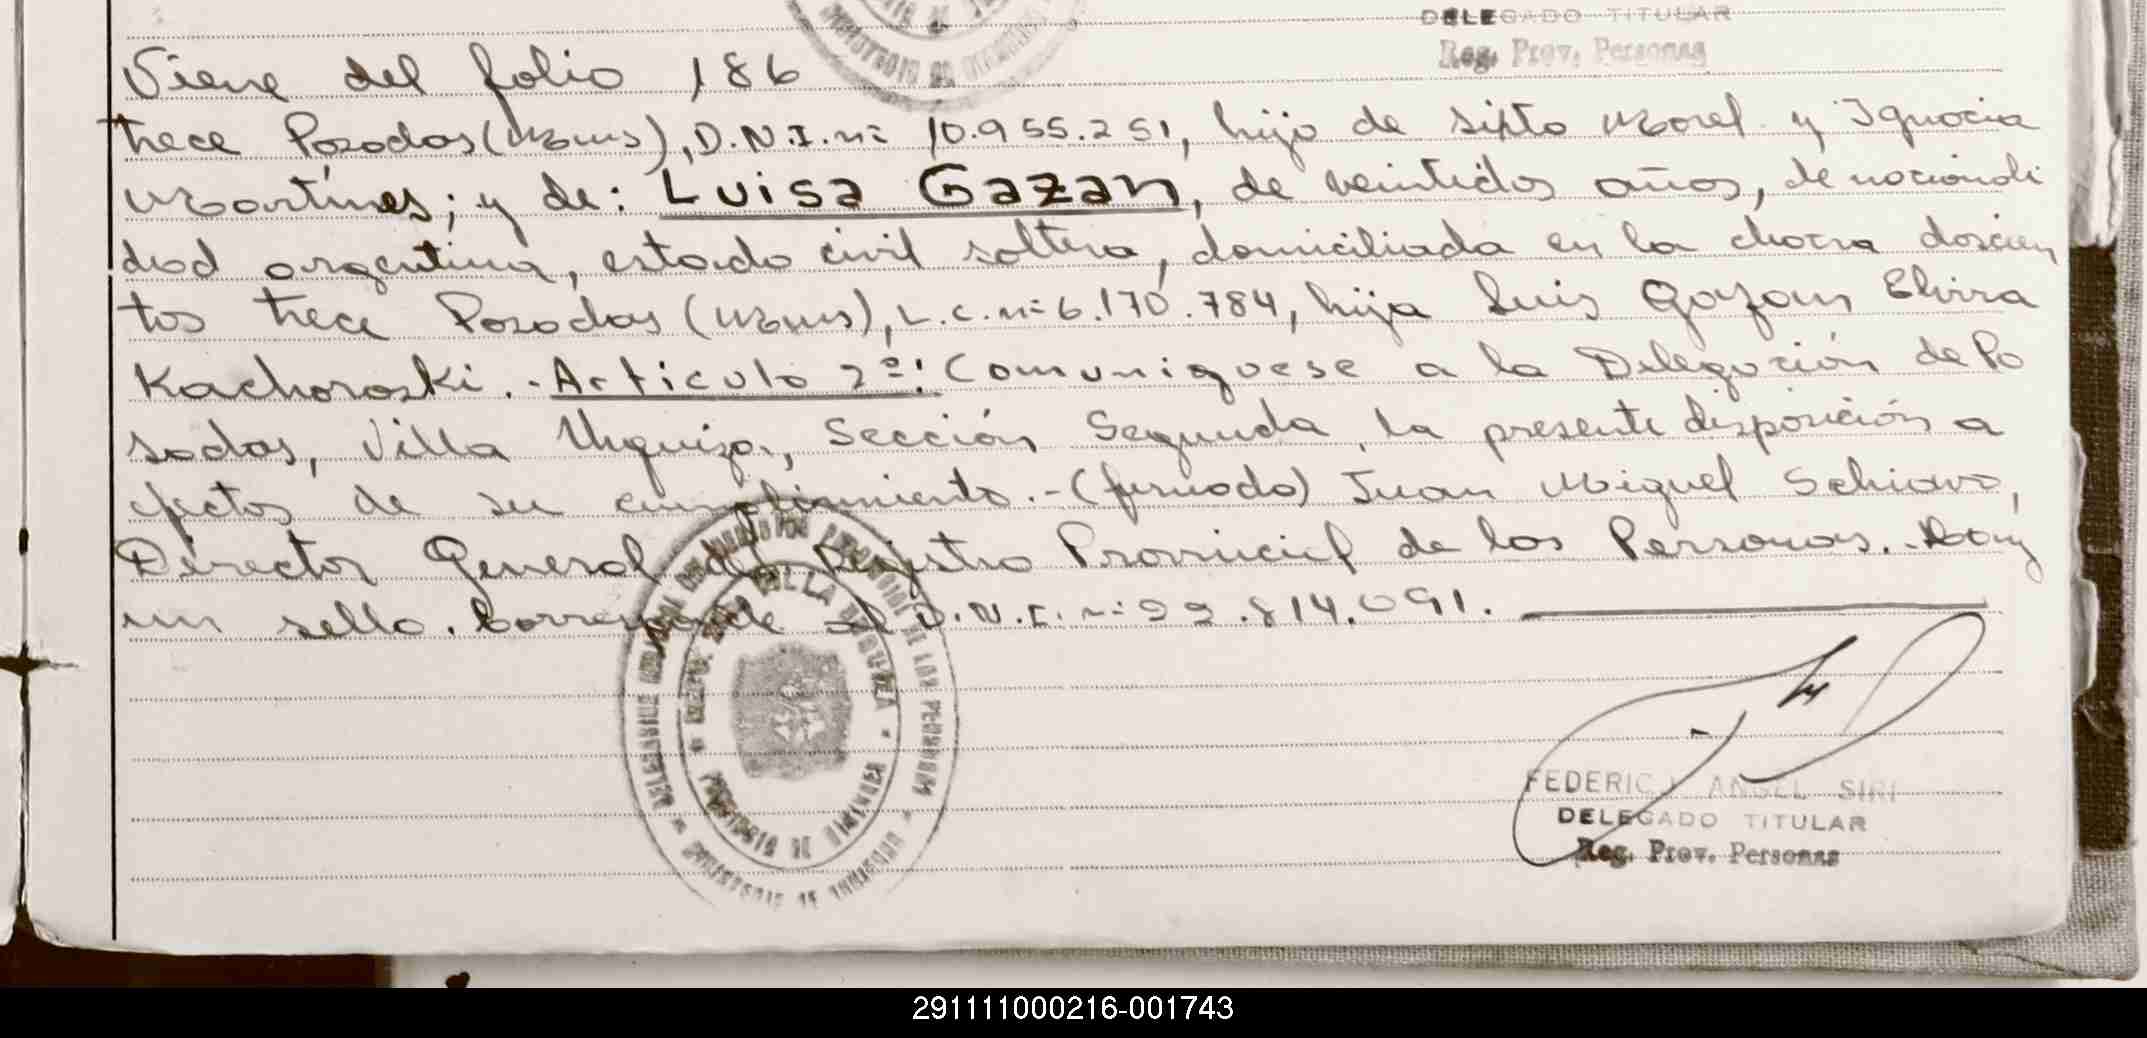 DELEGADO TITULAR
Reg. Prov. Personas
Viene del folio 186
trece Posadas (Mnes), D.N.I. nº 10.955.251, hijo de Sixto Morel y Ignacia
Martínes; y de: Luisa Gazan, de veintidos años, de nacionali
dad argentina, estado civil soltera, domiciliada en la chacra doscien
tos trece Posadas (Mnes), L.C. nº 6.170.784, hija Luis Gazan Elvira
Kachoroski.- Articulo 2º: Comuniquese a la Delegación de Po
sadas, Villa Urquiza, Sección Segunda, la presente disposición a
efectos de su cumplimiento.- (firmado) Juan Miguel Schiavo,
Director General del Registro Provincial de los Personas. Hay
un sello. Corresponde al D.N.I. nº 22.814.091.
FEDERICO ANGEL SIRI
DELEGADO TITULAR
Reg. Prov. Personas
291111000216-001743